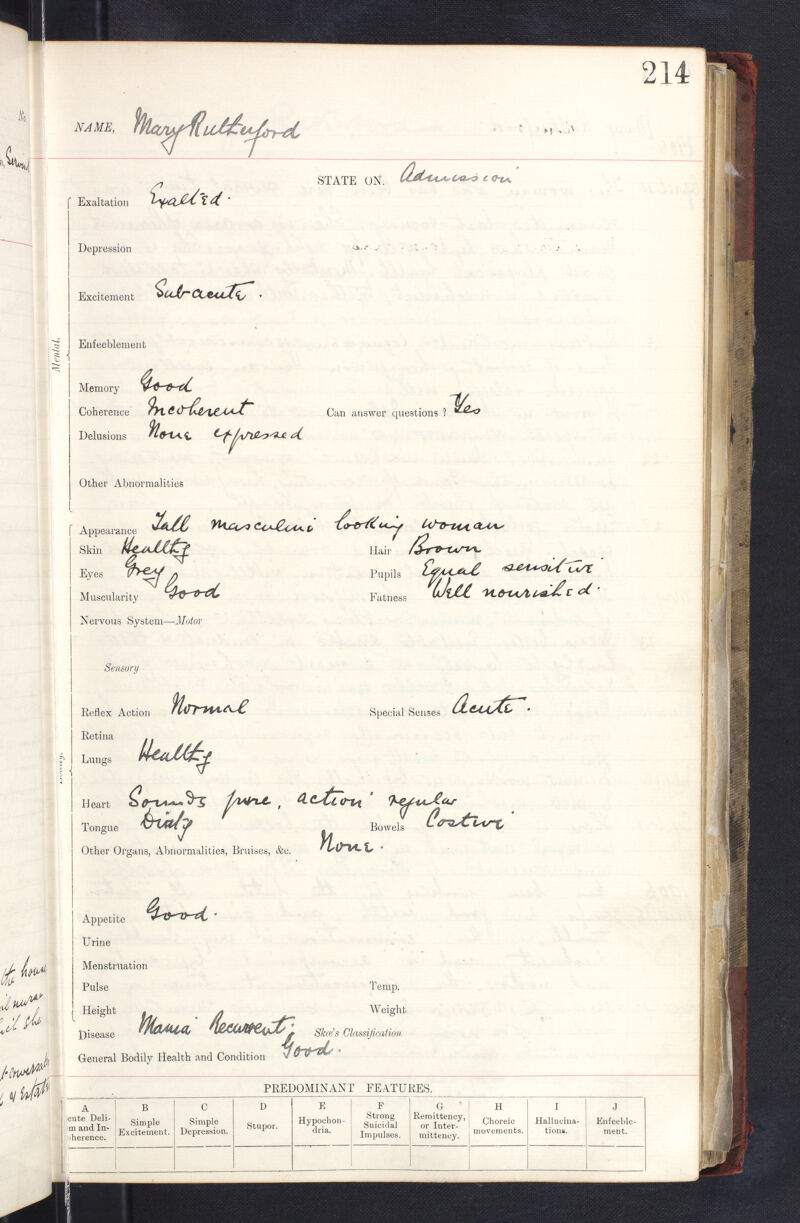 214
NAME, Mary Rutherford
STATE ON. Admission
Mental.
Exaltation Exalted.
Depression
Excitement Sub-acute.
Enfeeblement
Memory Good
Coherence Incoherent Can answer questions? Yes
Delusions None expressed
Other Abnormalities
Appearance Tall masculine looking woman
Skin Healthy Hair Brown
Eyes Grey Pupils Equal sensitive
Muscularity Good Fatness Well nourished.
Nervous System—Motor
Sensory
Reflex Action Normal Special Senses Acute.
Retina
Lungs Healthy
Heart Sounds pure, action regular
Tongue Dirty Bowels Costive
Other Organs, Abnormalities, Bruises, &c. None.
Appetite Good.
Urine
Menstruation
Pulse Temp.
Height Weight
Disease Mania Recurrent. Skae's Classification
General Bodily Health and Condition Good.
PREDOMINANT FEATURES.
A B C D E F G H I J
cute Deli-
m and In-
herence.
Simple
Excitement.
Simple
Depression.
Stupor.
Hypochon-
dria.
Strong
Suicidal
Impulses.
Remittency,
or Inter-
mittency.
Choreic
movements.
Hallucina-
tions.
Enfeeble-
ment.
the house